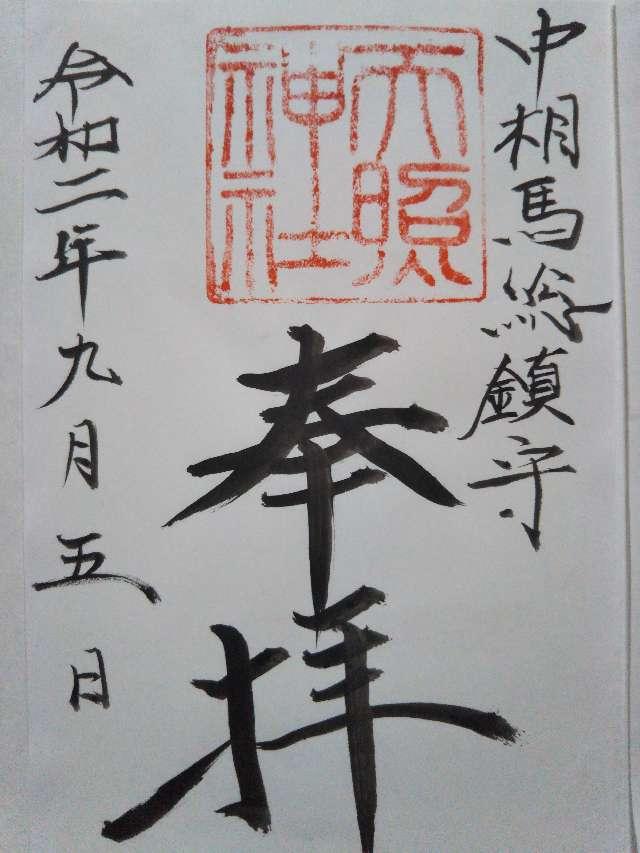 中相馬総鎮守
天照
神社
奉拝
令和二年九月五日